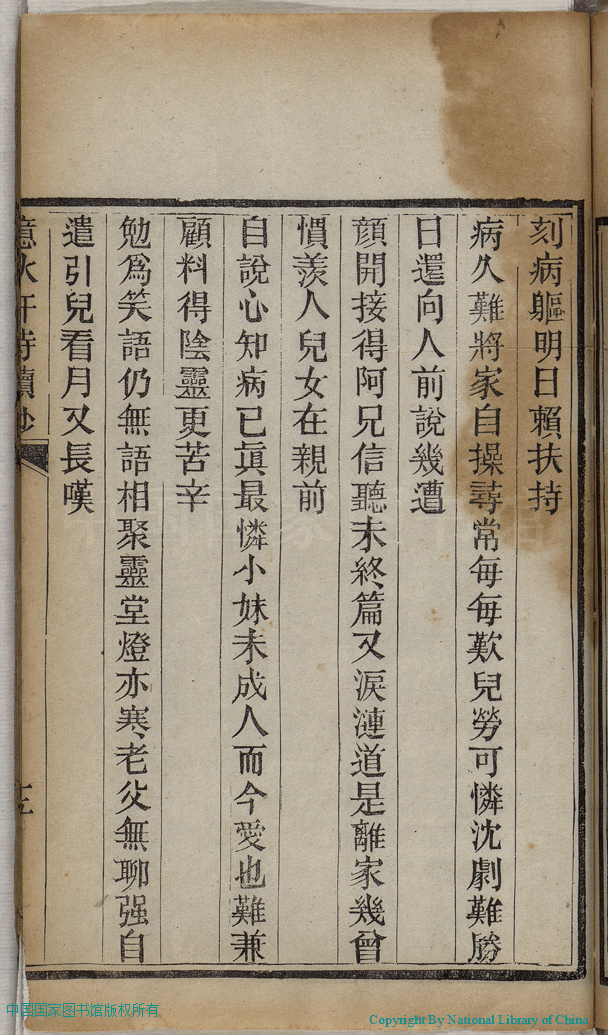 刻病軀明日賴扶持
病久難將家自操尋常每每歎兒勞可憐沈劇難勝
日還向人前說幾遭
顏開接得阿兄信聽未終篇又淚漣道是離家幾曾
慣羨人兒女在親前
自說心知病已眞最憐小妹未成人而今愛也難兼
顧料得陰靈更苦辛
勉爲笑語仍無語相聚靈堂燈亦寒老父無聊强自
遣引兒看月又長嘆
中国国家图书馆版权所有
Copyright By National Library of China